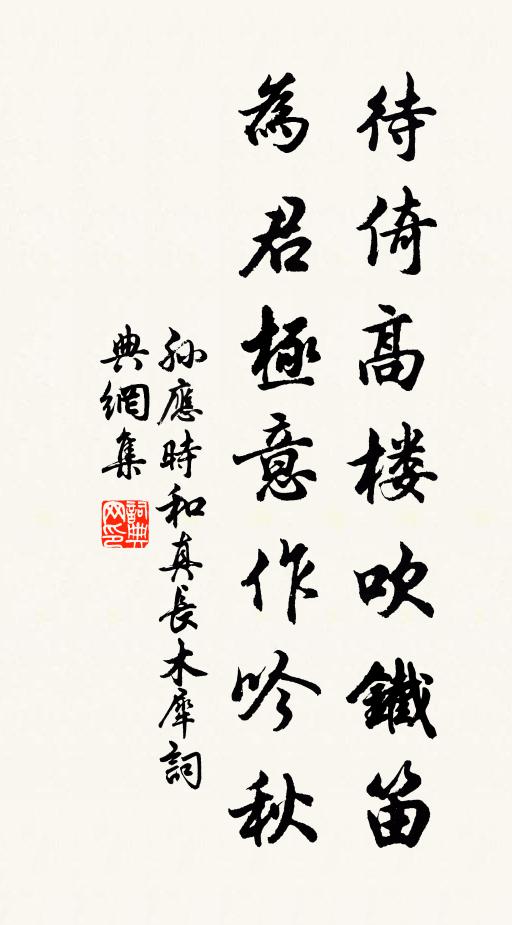 待倚高楼吹鐵笛
為君極意作吟秋
孙應時和真長木犀詞
典網集
詞典网印